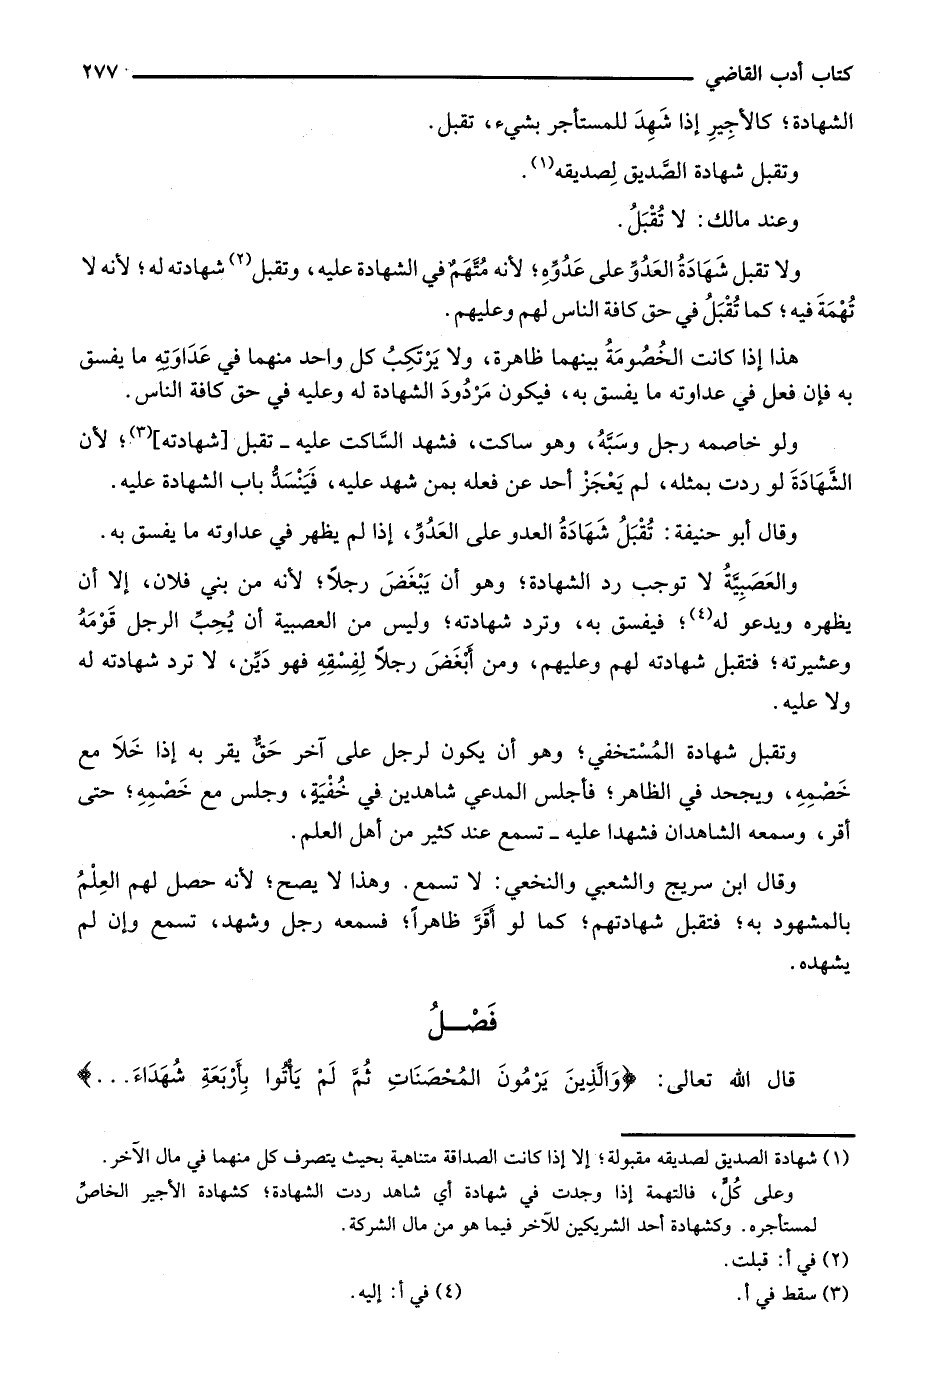 كتاب أدب القاضي ٢٧٧
الشهادة؛ كالأجِيرِ إذا شَهِدَ للمستأجر بشيء، تقبل.
وتقبل شهادة الصَّديق لِصديقه(١).
وعند مالك: لا تُقْبَلُ.
ولا تقبل شَهَادَةُ العَدُوِّ على عَدُوِّهِ؛ لأنه مُتَّهَمٌ في الشهادة عليه، وتقبل(٢) شهادته له؛ لأنه لا
تُهْمَةَ فيه؛ كما تُقْبَلُ في حق كافة الناس لهم وعليهم.
هذا إذا كانت الخُصُومَةُ بينهما ظاهرة، ولا يَرْتَكِبُ كل واحد منهما في عَدَاوَتِهِ ما يفسق
به فإن فعل في عداوته ما يفسق به، فيكون مَرْدُودَ الشهادة له وعليه في حق كافة الناس.
ولو خاصمه رجل وسَبَّهُ، وهو ساكت، فشهد السَّاكت عليه ـ تقبل [شهادته](٣)؛ لأن
الشَّهَادَةَ لو ردت بمثله، لم يَعْجَزْ أحد عن فعله بمن شهد عليه، فَيَنْسَدُّ باب الشهادة عليه.
وقال أبو حنيفة: تُقْبَلُ شَهَادَةُ العدو على العَدُوِّ، إذا لم يظهر في عداوته ما يفسق به.
والعَصَبِيَّةُ لا توجب رد الشهادة؛ وهو أن يَبْغَضَ رجلاً؛ لأنه من بني فلان، إلا أن
يظهره ويدعو له(٤)؛ فيفسق به، وترد شهادته؛ وليس من العصبية أن يُحِبَّ الرجل قَوْمَهُ
وعشيرته؛ فتقبل شهادته لهم وعليهم، ومن أَبْغَضَ رجلاً لِفِسْقِهِ فهو دَيِّن، لا ترد شهادته له
ولا عليه.
وتقبل شهادة المُسْتخفي؛ وهو أن يكون لرجل على آخر حَقٌّ يقر به إذا خَلَا مع
خَصْمِهِ، ويجحد في الظاهر؛ فأجلس المدعي شاهدين في خُفْيَةٍ، وجلس مع خَصْمِهِ؛ حتى
أقر، وسمعه الشاهدان فشهدا عليه ـ تسمع عند كثير من أهل العلم.
وقال ابن سريج والشعبي والنخعي: لا تسمع. وهذا لا يصح؛ لأنه حصل لهم العِلْمُ
بالمشهود به؛ فتقبل شهادتهم؛ كما لو أَقَرَّ ظاهراً؛ فسمعه رجل وشهد، تسمع وإن لم
يشهده.
فَصْـــلُ
قال الله تعالى: ﴿وَالَّذِينَ يَرْمُونَ المُحْصَنَاتِ ثُمَّ لَمْ يَأْتُوا بِأَرْبَعَةِ شُهَدَاءَ...﴾
(١) شهادة الصديق لصديقه مقبولة؛ إلا إذا كانت الصداقة متناهية بحيث يتصرف كل منهما في مال الآخر.
وعلى كُلٍّ، فالتهمة إذا وجدت في شهادة أي شاهد ردت الشهادة؛ كشهادة الأجير الخاصِّ
لمستأجره. وكشهادة أحد الشريكين للآخر فيما هو من مال الشركة.
(٢) في أ: قبلت.
(٣) سقط في أ. (٤) في أ: إليه.